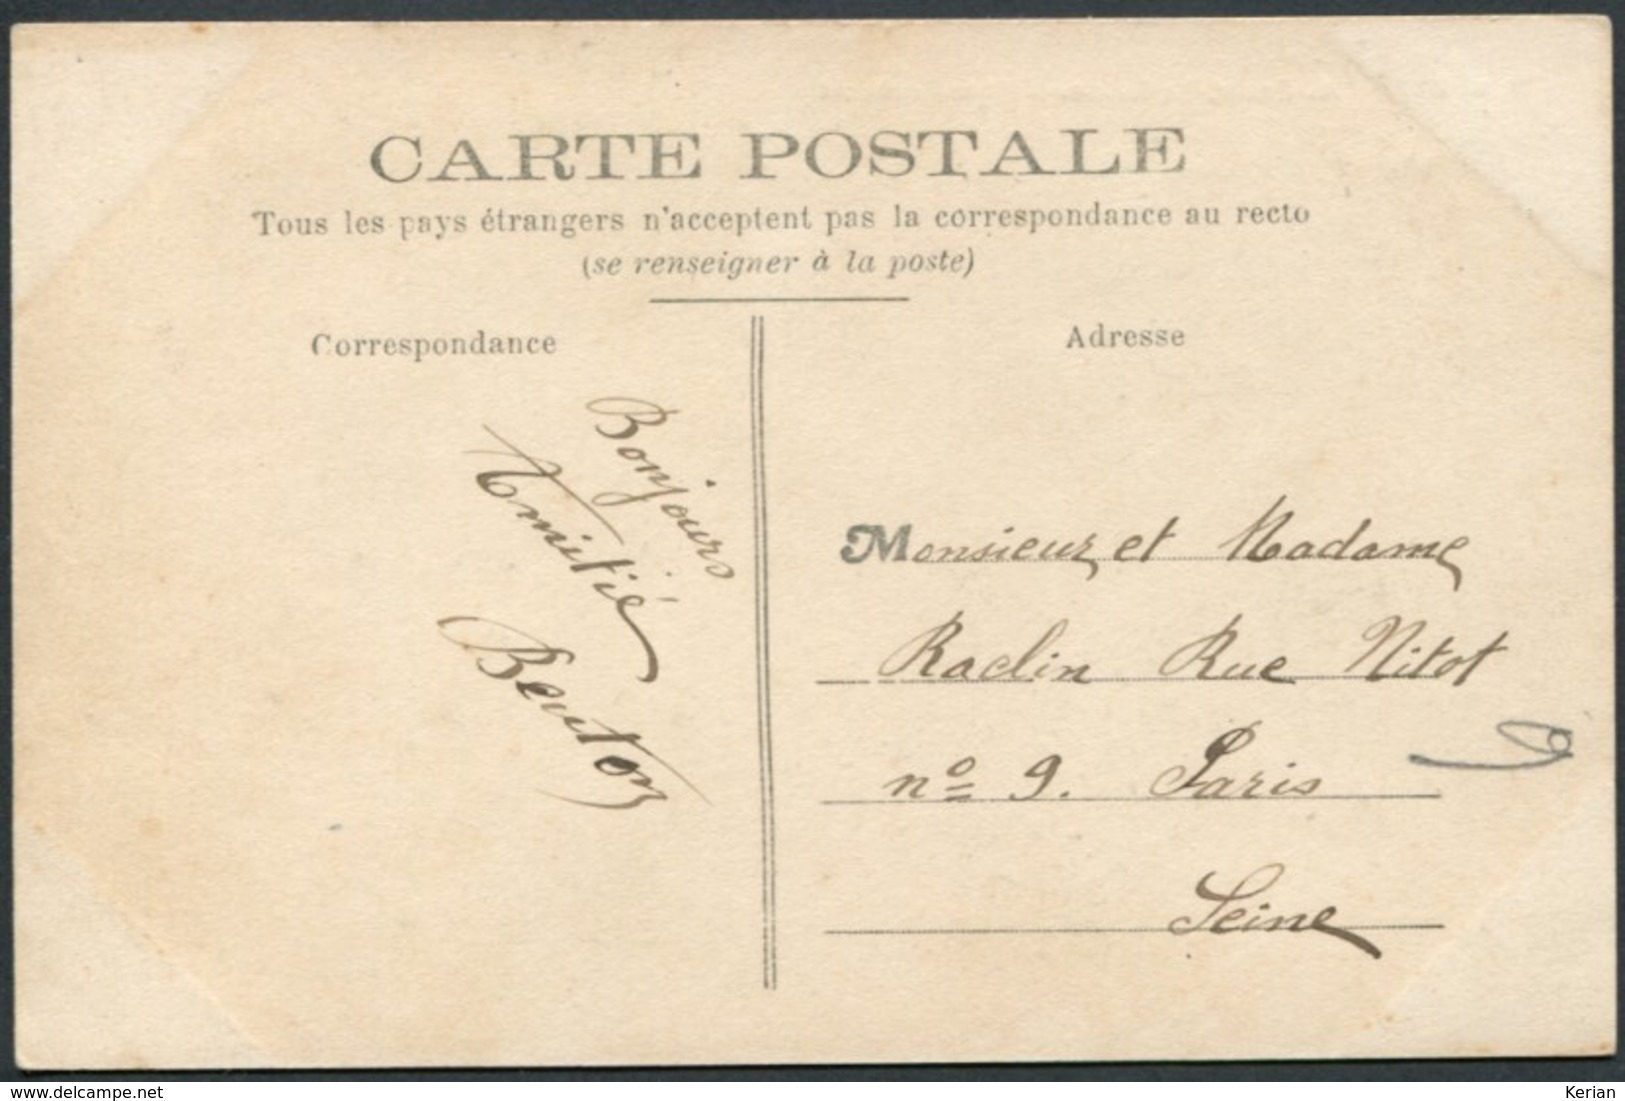 CARTE POSTALE
Tous les pays étrangers n'acceptent pas la correspondance au recto
(se renseigner à la poste)
Correspondance
Adresse
Bonjours
Amitié
Monsieur et Madame
Raclin Rue Nitot
nº 9. Paris
Seine
delcampe.net
Kerian